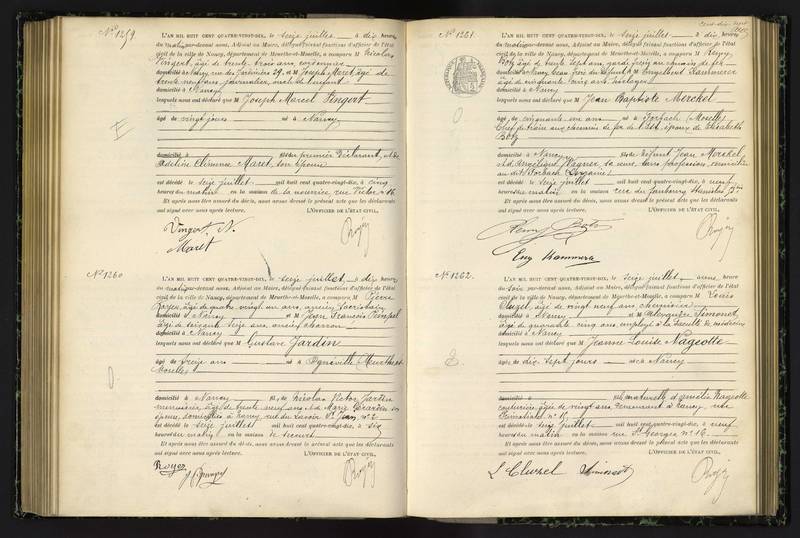 N° 1259.
L'AN MIL HUIT CENT QUATRE-VINGT-DIX, le seize juillet à dix heures
du matin par-devant nous, Adjoint au Maire, délégué faisant fonctions d'officier de l'état
civil de la ville de Nancy, département de Meurthe-et-Moselle, a comparu M Nicolas
Vingert, âgé de trente trois ans, cordonnier
domicilié à Nancy, rue des Jardiniers 29, et M Joseph Maret, âgé de
trente neuf ans, journalier, oncle de l'enfant
domicilié à Nancy
lesquels nous ont déclaré que M Joseph Marcel Vingert
âgé de vingt jours né à Nancy
domicilié à fils du premier déclarant, et de
Adeline Clémence Maret, son épouse
est décédé le seize juillet mil huit cent quatre-vingt-dix, à cinq
heures du matin en la maison de sa nourrice, rue Victor n° 16
Et après nous être assuré du décès, nous avons dressé le présent acte que les déclarants
ont signé avec nous après lecture. L'OFFICIER DE L'ÉTAT CIVIL,
Vingert N.
Maret
N° 1260
L'AN MIL HUIT CENT QUATRE-VINGT-DIX, le seize juillet, à dix heures
du matin par-devant nous, Adjoint au Maire, délégué faisant fonctions d'officier de l'état
civil de la ville de Nancy, département de Meurthe-et-Moselle, a comparu M Pierre
Royer, âgé de quatre vingt un ans, ancien Sacristain
domicilié à Nancy et M Jean François
âgé de soixante seize ans, ancien charron
domicilié à Nancy
lesquels nous ont déclaré que M Gustave Jardin
âgé de treize ans né à Ogneville (Meurthe et
Moselle)
domicilié à Nancy fils de Nicolas Victor Jardin
menuisier, âgé de trente neuf ans et de Marie Gérardin son
épouse, domiciliés à Nancy, rue du Lavoir St Jean n° 2
est décédé le seize juillet mil huit cent quatre-vingt-dix, à six
heures du matin en la maison de secours
Et après nous être assuré du décès, nous avons dressé le présent acte que les déclarants
ont signé avec nous après lecture. L'OFFICIER DE L'ÉTAT CIVIL,
Royer
N° 1261.
L'AN MIL HUIT CENT QUATRE-VINGT-DIX, le seize juillet à dix heures
du matin par-devant nous, Adjoint au Maire, délégué faisant fonctions d'officier de l'état
civil de la ville de Nancy, département de Meurthe-et-Moselle, a comparu M Remy
Botz âgé de trente sept ans, garde frein au chemin de fer
domicilié à Nancy, beau frère du défunt, et M Engelbert Kammerer
âgé de cinquante cinq ans,
domicilié à Nancy
lesquels nous ont déclaré que M Jean Baptiste Merckel
âgé de cinquante un ans né à Forbach (Moselle)
Chef de train aux chemins de fer de l'Est, époux de Elisabeth
Botz
domicilié à Nancy fils de défunt Jean Merckel
et d'Angélique Wagner, sa veuve, sans profession, domiciliée
au dit Forbach (Lorraine)
est décédé le seize juillet mil huit cent quatre-vingt-dix, à neuf
heures du matin en la maison rue du faubourg Stanislas
Et après nous être assuré du décès, nous avons dressé le présent acte que les déclarants
ont signé avec nous après lecture. L'OFFICIER DE L'ÉTAT CIVIL,
Remy Botz
Eng Kammerer
N° 1262.
L'AN MIL HUIT CENT QUATRE-VINGT-DIX, le seize juillet, à une heure
du soir par-devant nous, Adjoint au Maire, délégué faisant fonctions d'officier de l'état
civil de la ville de Nancy, département de Meurthe-et-Moselle, a comparu M Louis
Cluzel, âgé de vingt neuf ans, chemisier
domicilié à Nancy et M Alexandre Simonet,
âgé de quarante cinq ans, employé à la faculté de médecine
domicilié à Nancy
lesquels nous ont déclaré que M Jeanne Louise Nageotte
âgée de dix sept jours née à Nancy
domicilié à fille naturelle d'Amélie Nageotte
couturière, âgée de vingt ans, demeurant à Nancy, rue
est décédée le seize juillet mil huit cent quatre-vingt-dix, à neuf
heures du matin en la maison rue St Georges n° 16
Et après nous être assuré du décès, nous avons dressé le présent acte que les déclarants
ont signé avec nous après lecture. L'OFFICIER DE L'ÉTAT CIVIL,
L Cluzel Simonet